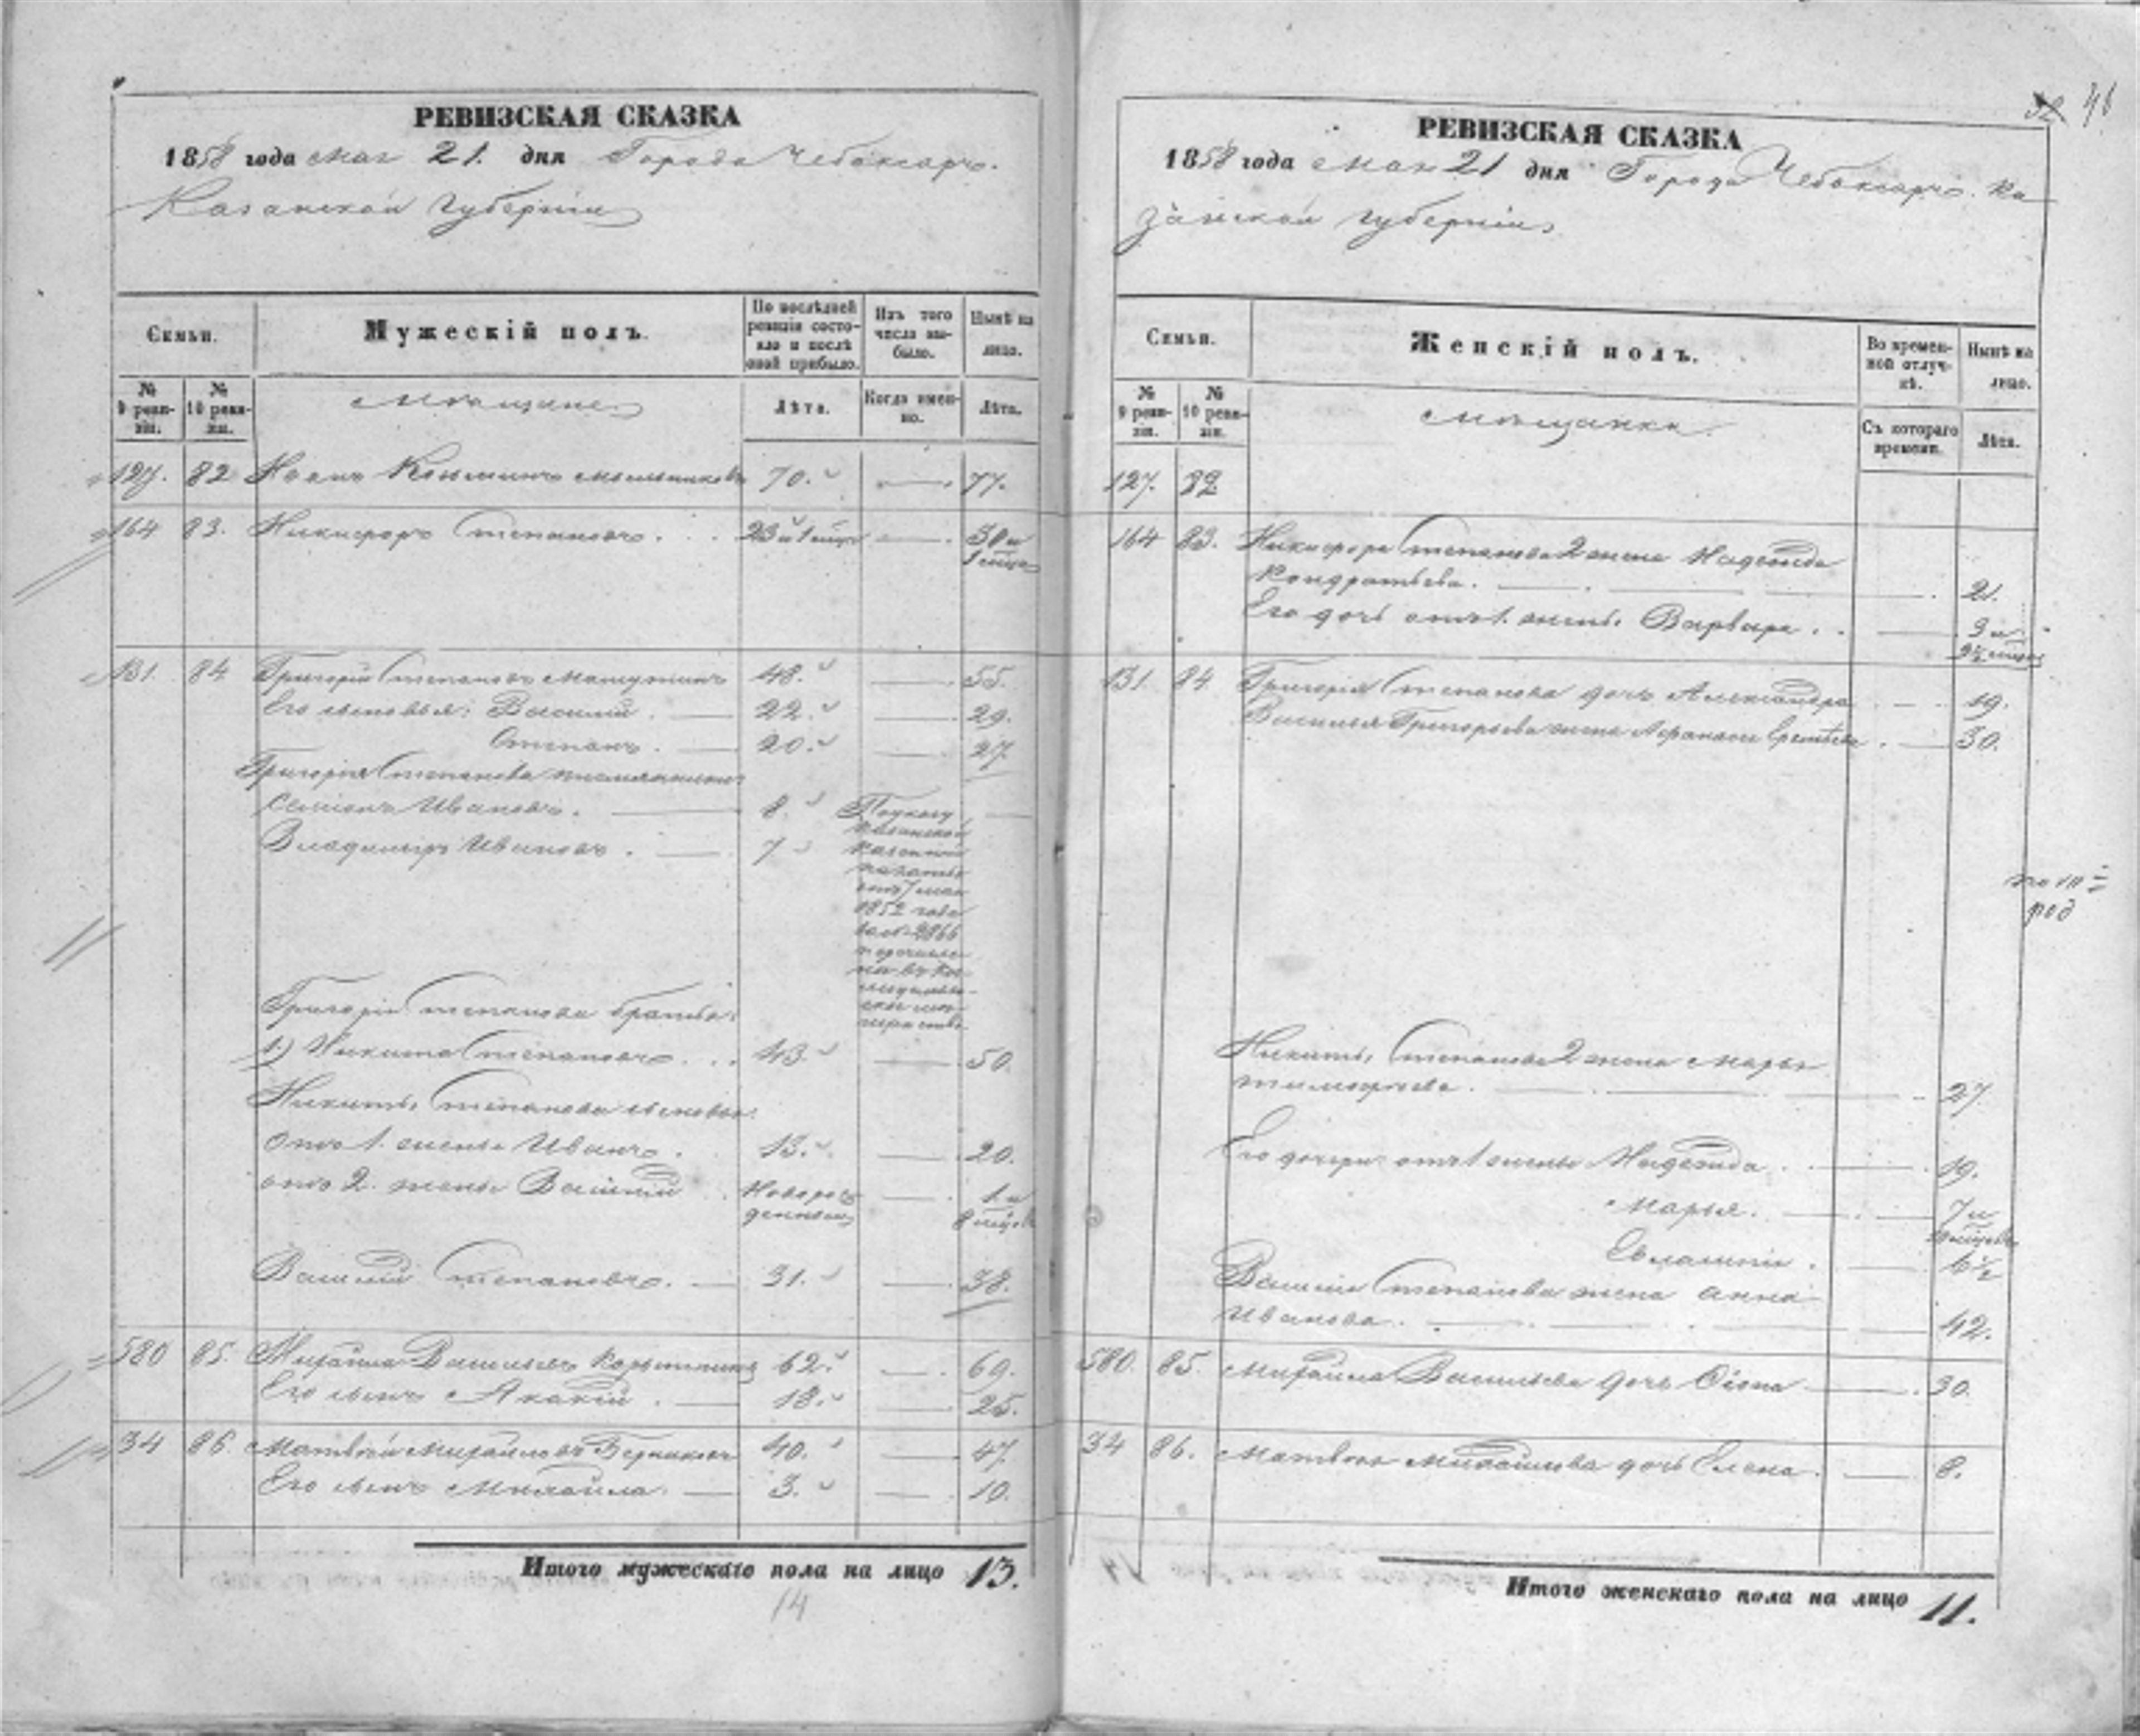 РЕВИЗСКАЯ СКАЗКА
1858 года мая 21. дня Города Чебоксаръ.
Казанской губерніи
Семьи.
Мужескій полъ.
По послѣдней ревизіи состояло и послѣ оной прибыло.
Изъ того числа выбыло.
Нынѣ на лицо.
№ 9 ревизіи.
№ 10 ревизіи.
Мѣщане
Лѣта.
Когда именно.
Лѣта.
127. 82 Козминъ Мыльниковъ 70. 77.
164 83. Никифоръ Степановъ. 23 и 30 и
131. 84 Григорій Степановъ 48. 55.
Его сыновья: Василій. 22. 29.
Степанъ. 20. 27.
Григорія Степанова племянники:
Семіонъ Ивановъ. 8.
Владиміръ Ивановъ. 7
По указу
Казанской
Казенной
палаты
отъ 7 мая
1852 года
за № 2866
Григорія Степанова братья:
1.) Никита Степановъ. 43. 50.
Никиты Степанова сыновья:
отъ 1. жены Иванъ. 13. 20.
отъ 2. жены Василій новорожденный 1. и
Василій Степановъ. 31. 38.
580 85. Михайла Васильевъ 62. 69.
Его сынъ Акакій. 18. 25.
34 86. Матвѣй Михайловъ 40. 47.
Его сынъ Михайла. 3. 10.
Итого мужескаго пола на лицо 13.
14
46
РЕВИЗСКАЯ СКАЗКА
1858 года мая 21 дня Города Чебоксаръ. Ка
занской губерніи
Семьи.
Женскій полъ.
Во временной отлучкѣ.
Нынѣ на лицо.
№ 9 ревизіи.
№ 10 ревизіи.
Мѣщанки.
Съ котораго времени.
Лѣта.
127. 82
164 83. Никифора Степанова 2 жена Надежда
Кондратьева. 21.
Его дочь отъ 1. жены Варвара. 3 и
131. 84 Григорія Степанова дочь Александра 19.
Василья Григорьева жена 30.
Никиты Степанова 2 жена Марья
Тимофѣева. 27.
Его дочери: отъ 1 жены Надежда. 19.
Марья. 7 и
Евлампія. 6½
Василія Степанова жена Анна
Иванова. 42.
580. 85. Михайла Васильева дочь 30.
34 86. Матвѣя Михайлова дочь Елена. 8.
Итого женскаго пола на лицо 11.